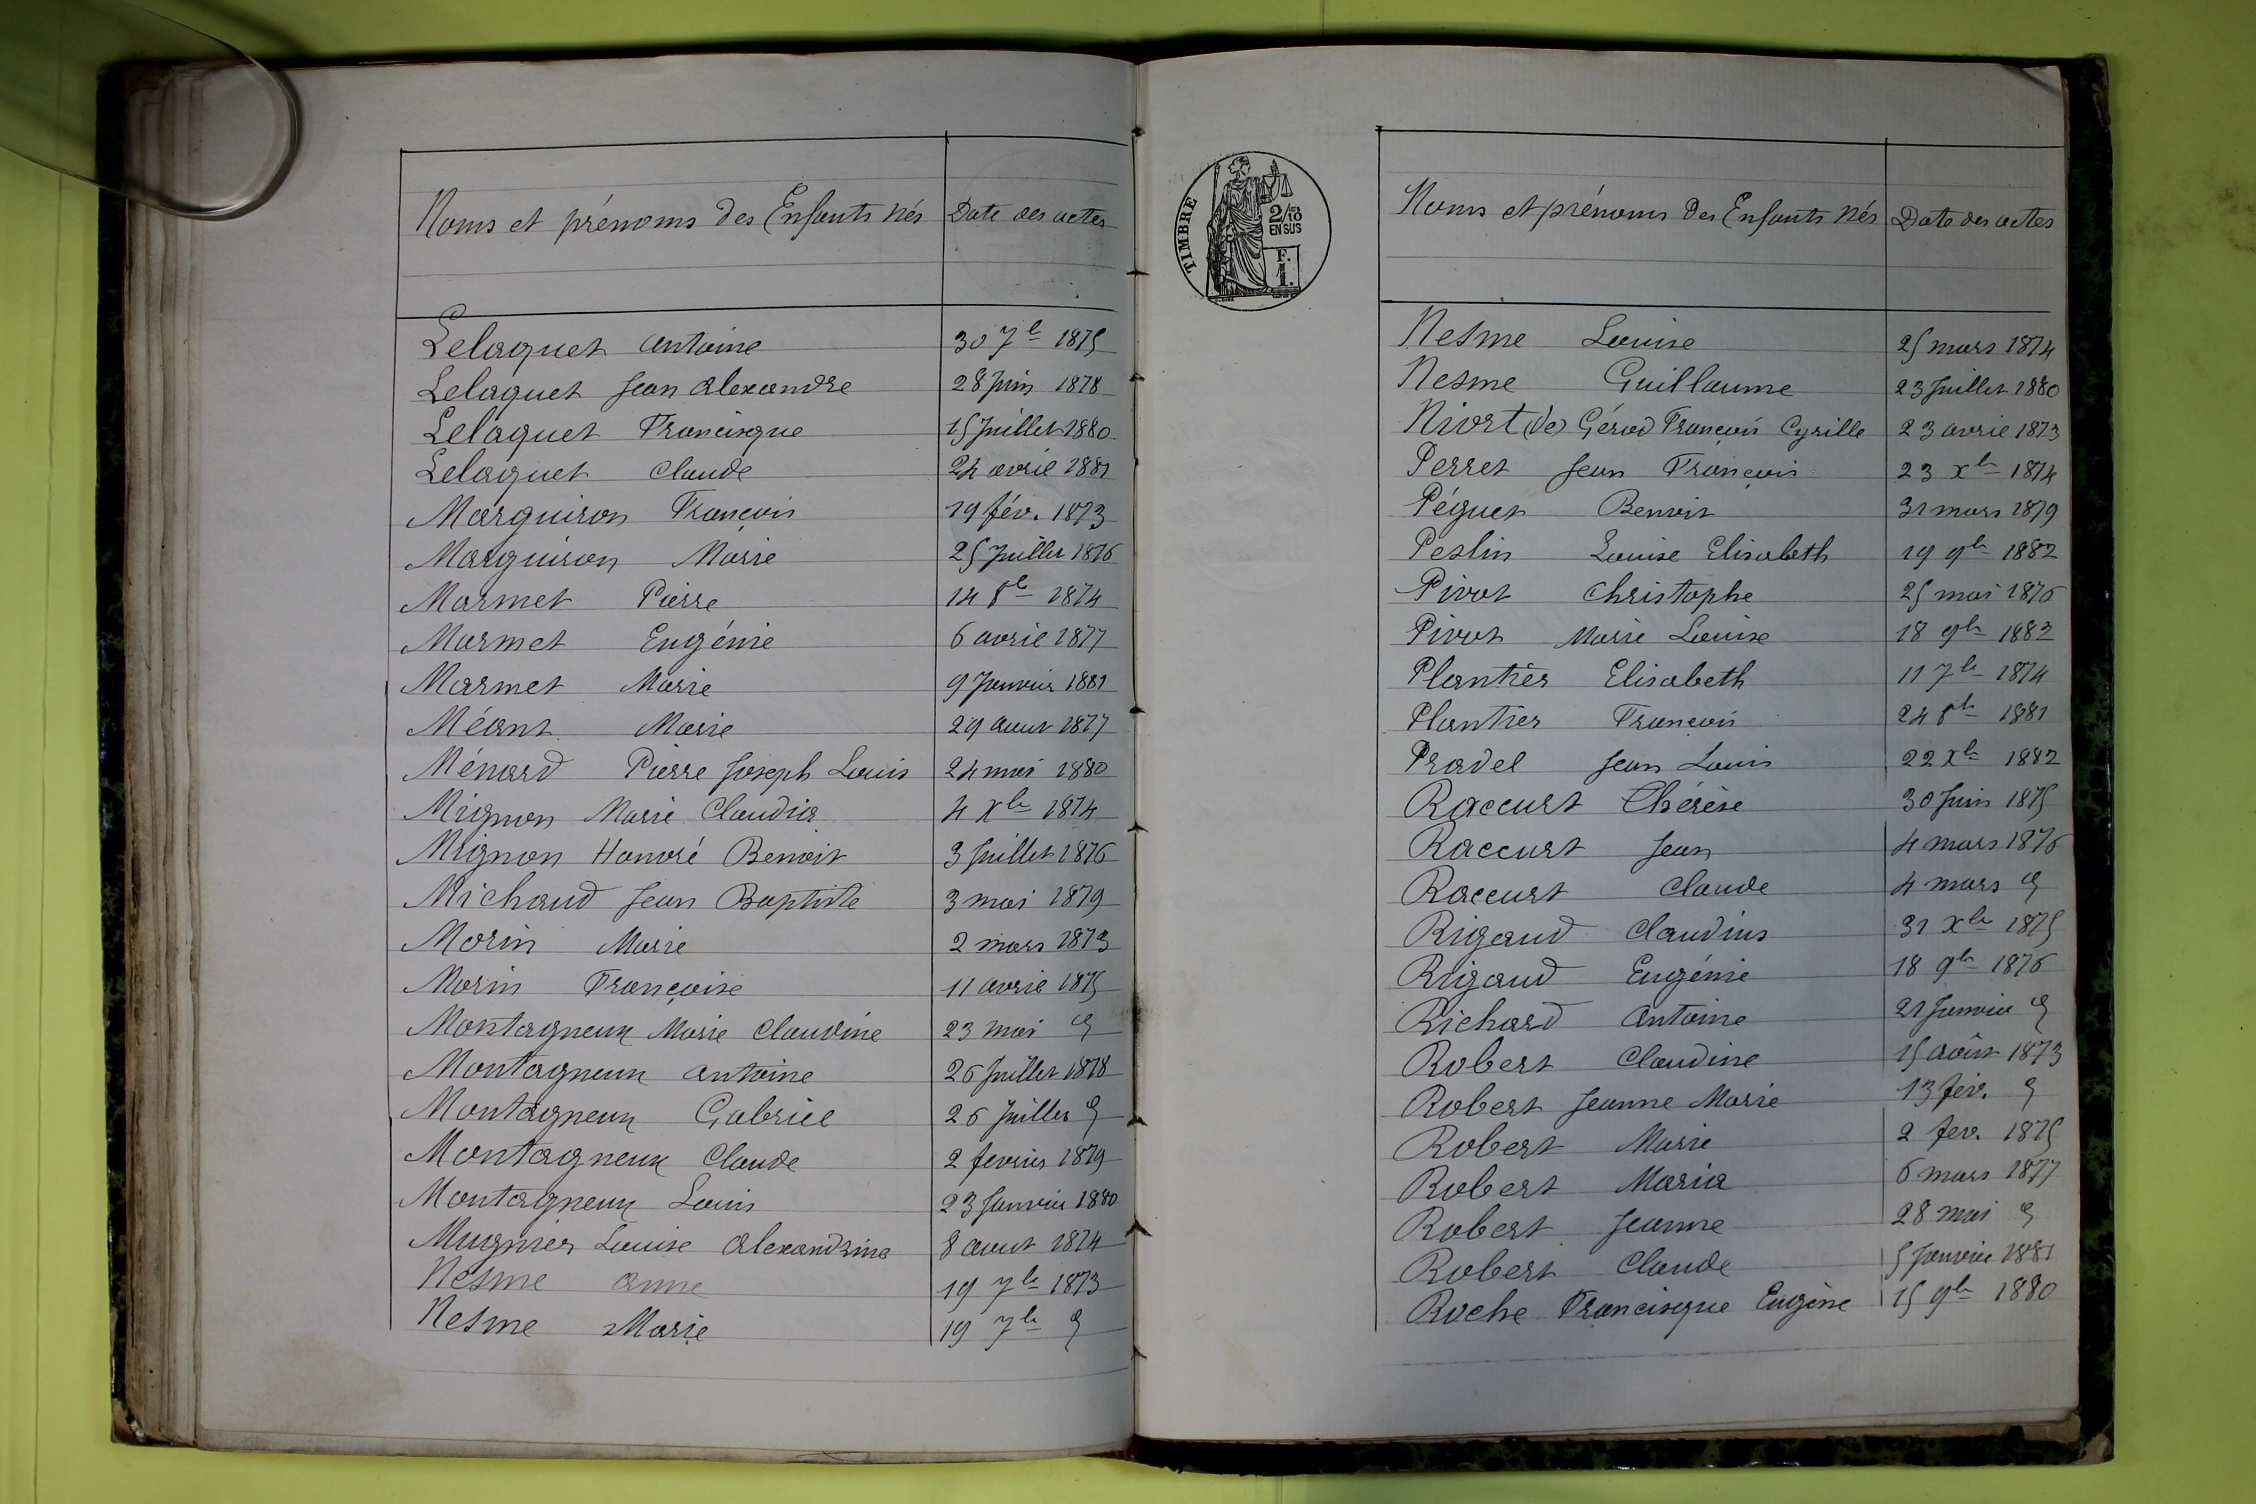 Noms et prénoms des Enfants nés Date des actes
Lelaquet antoine 30 7b 1875
Lelaquet Jean alexandre 28 Juin 1878
Lelaquet Francisque 15 Juillet 1880
Lelaquet Claude 24 avril 1881
Marguiron François 19 fév. 1873
Marguiron Marie 25 Juillet 1876
Marmet Pierre 14 8b 1874
Marmet Eugénie 6 avril 1877
Marmet Marie 9 Janvier 1881
Méant Marie 29 aout 1877
Ménard Pierre Joseph Louis 24 mai 1880
Mignon Marie Claudia 4 Xb 1874
Mignon Honoré Benoit 3 Juillet 1876
Michaud Jean Baptiste 3 mai 1879
Morin Marie 2 mars 1873
Morin Françoise 11 avril 1875
Montagneux Marie Claudine 23 mai
Montagneux antoine 26 Juillet 1878
Montagneux Gabriel 26 Juillet
Montagneux Claude 2 fevrier 1879
Montagneux Louis 23 Janvier 1880
Mugnier Louise alexandrine 8 aout 1874
Nesme anne 19 7b 1873
Nesme Marie 19 7b
TIMBRE
2/10
EN SUS
F.
1.
Noms et prénoms des Enfants nés Date des actes
Nesme Louise 25 mars 1874
Nesme Guillaume 23 Juillet 1880
Niort (de) Gérod François Cyrille 23 avril 1873
Perret Jean François 23 xb 1874
Péguet Benoit 31 mars 1879
Peslin Louise Elisabeth 19 9b 1882
Pivot Christophe 25 mai 1876
Pivot Marie Louise 18 9b 1882
Plantier Elisabeth 11 7b 1874
Plantier François 24 8b 1881
Pradel Jean Louis 22 Xb 1882
Raccurt Thérèse 30 Juin 1875
Raccurt Jean 4 mars 1876
Raccurt Claude 4 mars
Rigaud Claudius 31 Xb 1875
Rigaud Eugénie 18 9b 1876
Richard antoine 21 Janvier
Robert Claudine 15 août 1873
Robert Jeanne Marie 13 fév.
Robert Marie 2 fev. 1875
Robert Maria 6 mars 1877
Robert Jeanne 28 mai
Robert Claude 5 Janvier 1881
Roche Francisque Eugène 15 9b 1880